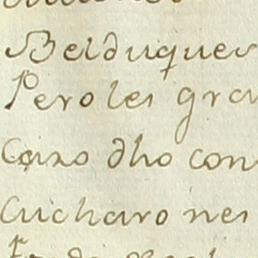 Belduques
Peroles gra
Cazo dho con
Cucharones